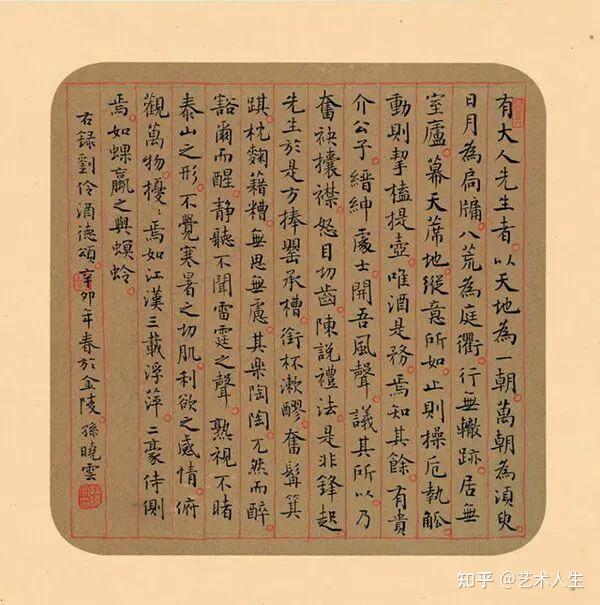 有大人先生者以天地為一朝萬朝為湏臾
日月為扃牖八荒為庭衢行無轍跡居無
室廬幕天蓆地縱意所如止則操卮執觚
動則挈榼提壺唯酒是務焉知其餘有貴
介公子縉紳處士開吾風聲議其所以乃
奮袂攘襟怒目切齒陳說禮法是非鋒起
先生於是方捧罌承槽銜杯漱醪奮髯箕
踑枕麴藉糟無思無慮其樂陶陶兀然而醉
豁爾而醒靜聽不聞雷霆之聲熟視不睹
泰山之形不覺寒暑之切肌利欲之感情俯
觀萬物擾〻焉如江漢三載浮萍二豪侍側
焉如蜾蠃之與螟蛉
右録劉伶酒德頌辛卯年春於金陵孫曉雲
知乎 @艺术人生